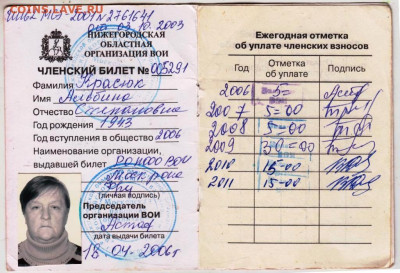 COINS.SU
от 02.10.2003
НИЖЕГОРОДСКАЯ
ОБЛАСТНАЯ
ОРГАНИЗАЦИЯ ВОИ
ЧЛЕНСКИЙ БИЛЕТ № 005291
Фамилия Красюк
Имя Альбина
Отчество Степановна
Год рождения 1943
Год вступления в общество 2006
Наименование организации,
выдавшей билет
(личная подпись)
Председатель
организации ВОИ
18.04-2006г
дата выдачи билета
Ежегодная отметка
об уплате членских взносов
Год Отметка об уплате Подпись
2006 5=
2007 5-00
2008 5-00
2009 30=00
2010 15-00
2011 15-00